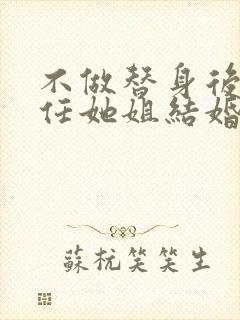 不做替身後
任她姐結婚
蘇杭笑笑生